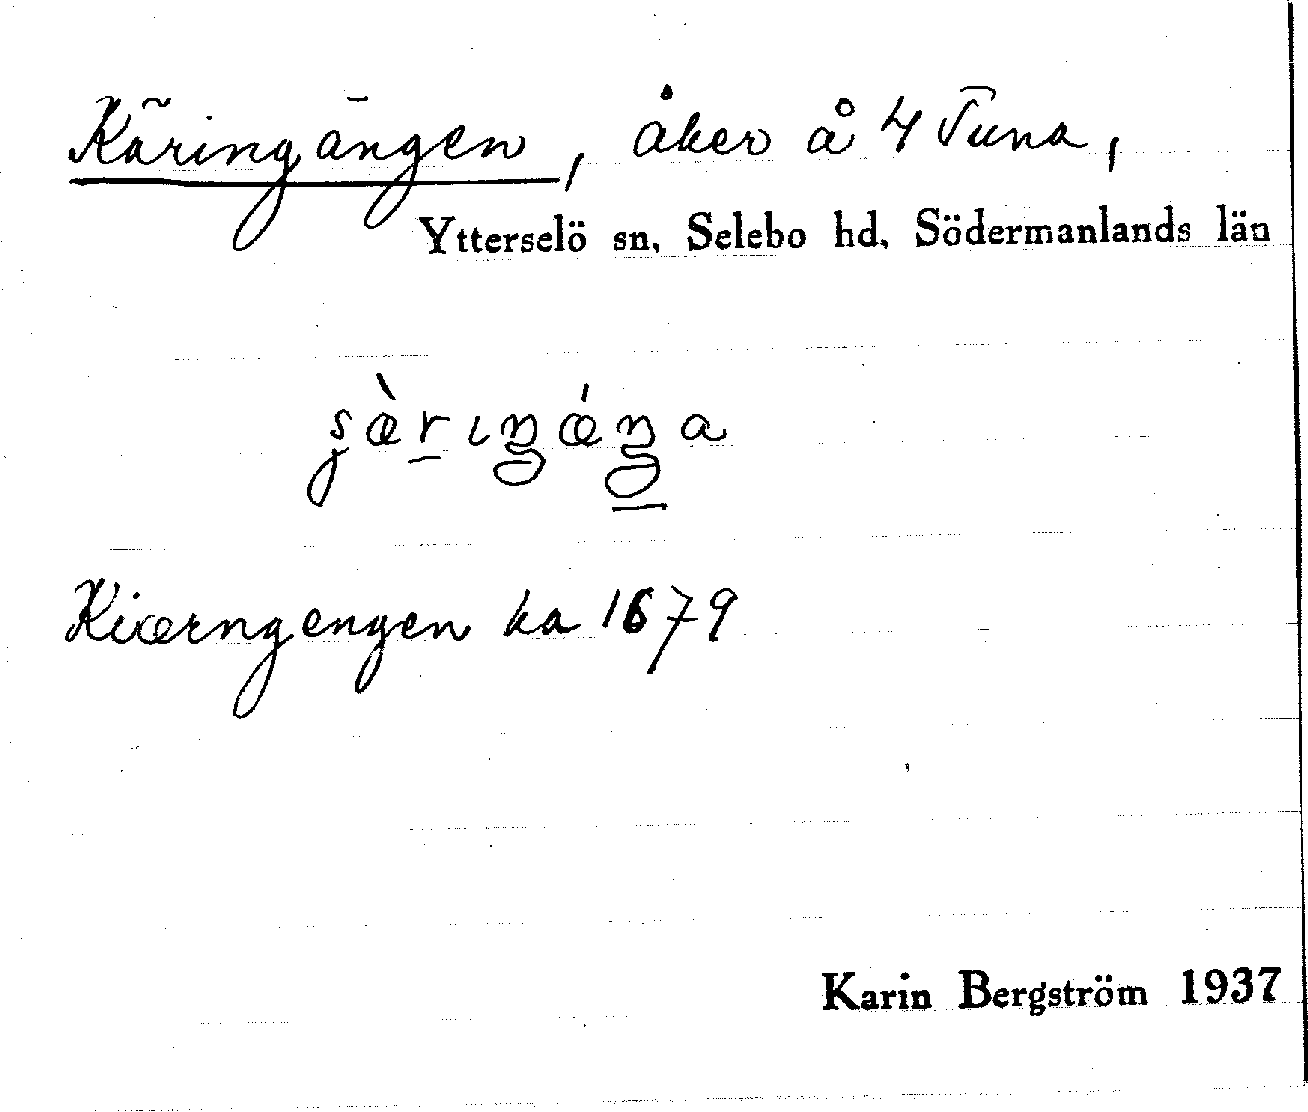 Käringängen, åker å 4 Tuna,
Ytterselö sn, Selebo hd, Södermanlands län
Kiærngengen ka 1679
Karin Bergström 1937